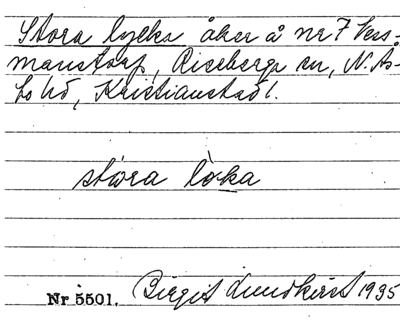 Stora lycka åker å nr 7 Vers-
manstorp, Riseberga sn, N. Ås-
bo hd, Kristianstad l.
stóra lò̀ka
Nr 5501. Birgit Lundkvist 1935